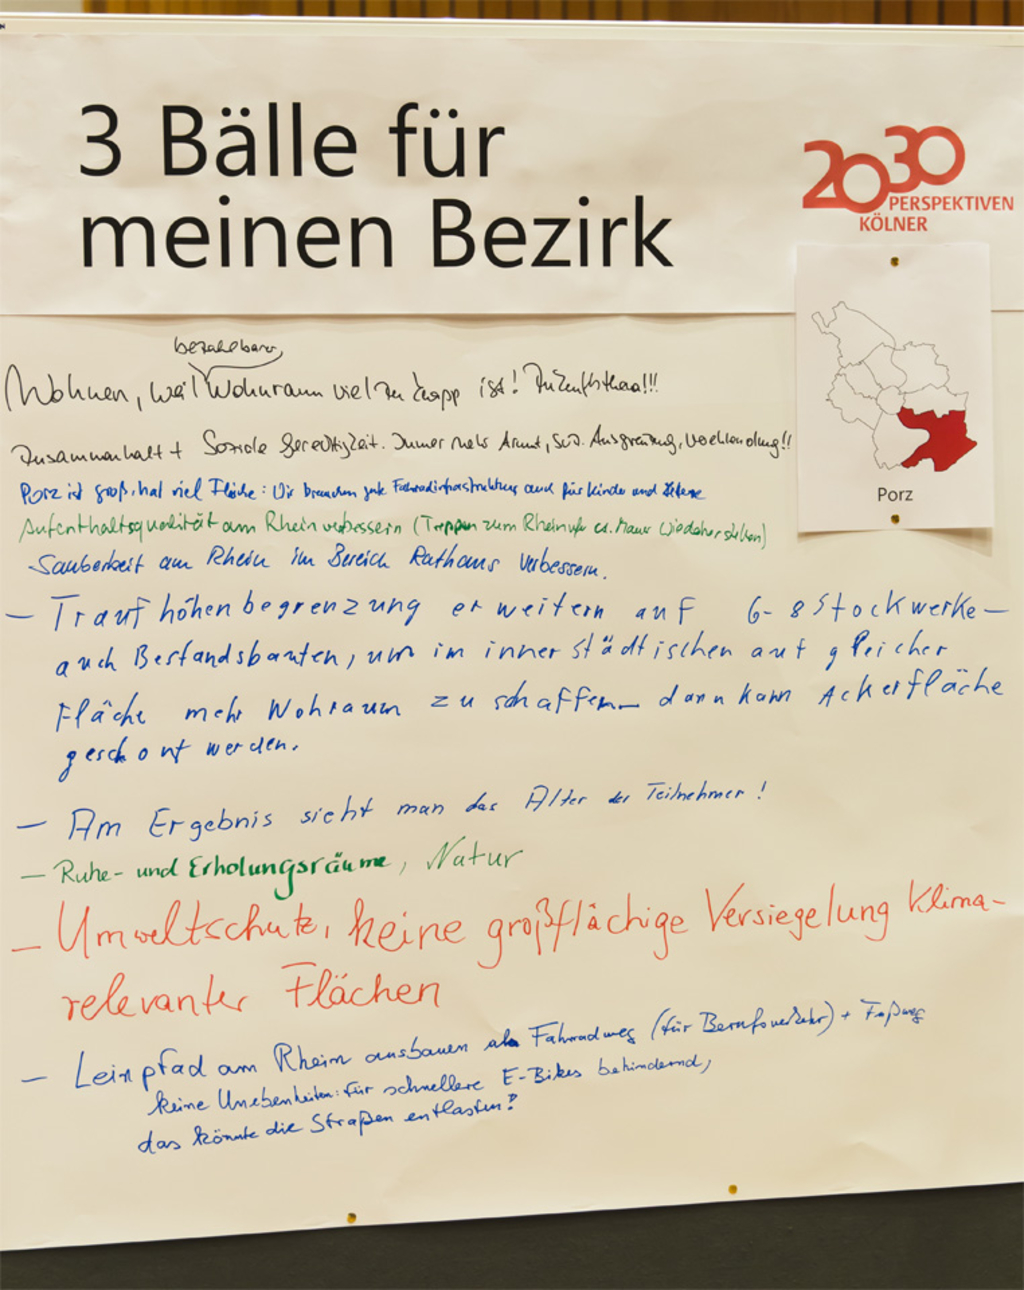 3 Bälle für
meinen Bezirk
2030
PERSPEKTIVEN
KÖLNER
Porz
bezahlbarer
Wohnen, weil Wohnraum viel zu knapp ist! Zukunftsthema!!!
Zusammenhalt + Soziale Gerechtigkeit. Immer mehr Armut, Ausgrenzung, Verelendung!!
Porz ist groß, hat viel Fläche: Wir brauchen gute Fahrradinfrastruktur auch für Kinder und Ältere
Aufenthaltsqualität am Rhein verbessern (Treppen zum Rheinufer Mauer wiederherstellen)
Sauberkeit am Rhein im Bereich Rathaus verbessern.
- Traufhöhenbegrenzung erweitern auf 6-8 Stockwerke -
auch Bestandsbauten, um im innerstädtischen auf gleicher
Fläche mehr Wohraum zu schaffen - dann kann Ackerfläche
geschont werden.
- Am Ergebnis sieht man das Alter der Teilnehmer!
- Ruhe- und Erholungsräume, Natur
- Umweltschutz, keine großflächige Versiegelung Klima-
relevanter Flächen
- Leinpfad am Rhein ausbauen als Fahrradweg (für Berufsverkehr) + Fußweg
keine Unebenheiten: für schnellere E-Bikes behindernd,
das könnte die Straßen entlasten!